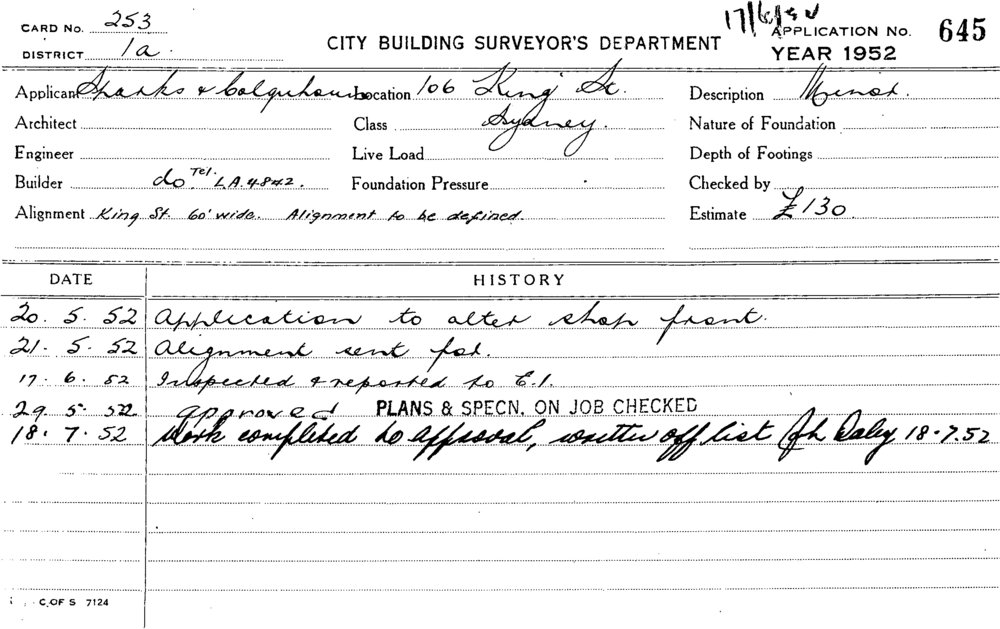 CARD No. 253
17/6/52 APPLICATION No. 645
DISTRICT 1a.
CITY BUILDING SURVEYOR'S DEPARTMENT
YEAR 1952
Applicant Sparks & Colquhoun Location 106 King St. Description Minor.
Architect Class Sydney. Nature of Foundation
Engineer Live Load Depth of Footings
Builder do Tel. LA.4842. Foundation Pressure Checked by
Alignment King St. 60' wide. Alignment to be defined. Estimate £130
DATE HISTORY
20. 5. 52 Application to alter shop front.
21. 5. 52 Alignment sent for.
17. 6. 52 Inspected & reported to E.I.
29. 5. 52 approved PLANS & SPECN. ON JOB CHECKED
18. 7. 52 Work completed to approval, written off list Jh Daley 18.7.52
C. OF S 7124